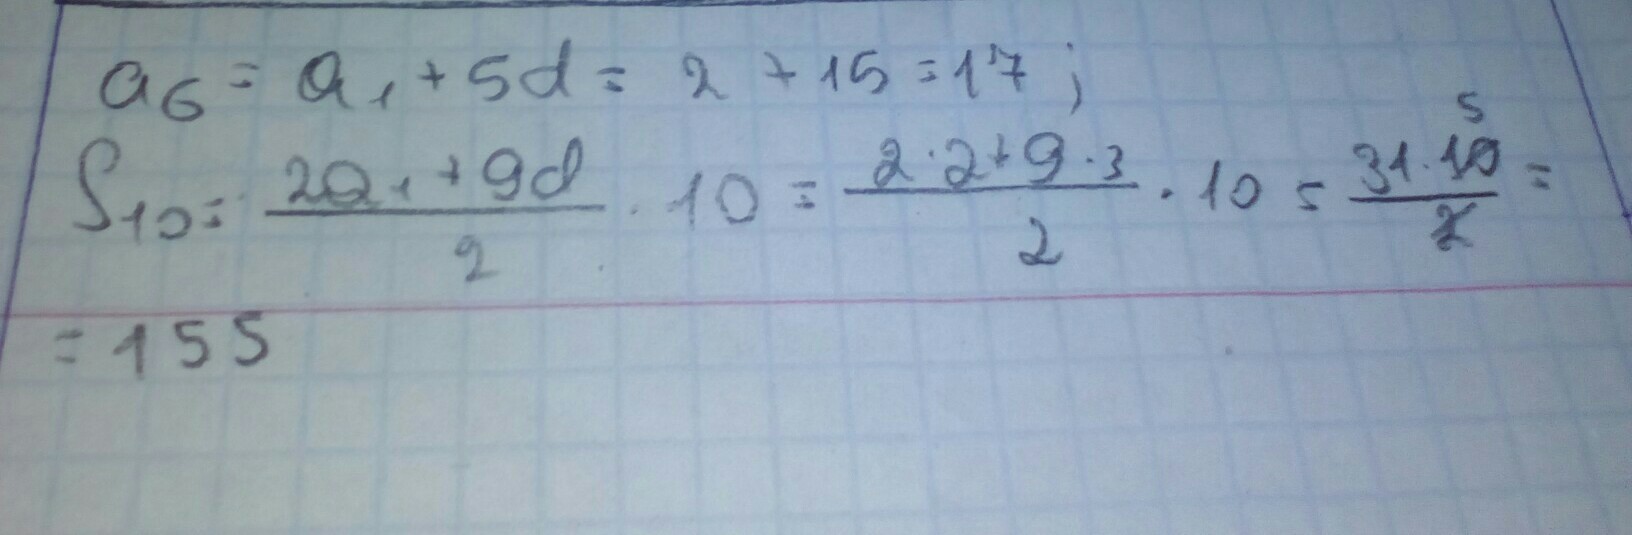 a₆ = a₁ + 5d = 2 + 15 = 17 ;
S₁₀ = (2a₁ + 9d)/2 · 10 = (2·2 + 9·3)/2 · 10 = (31·10)/2 = 5
= 155